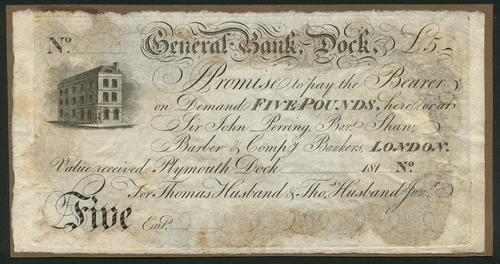 No. General-Bank, Dock, £5,-
I Promise to pay the Bearer
on Demand FIVE POUNDS, here or at
Sir John Perring, Bar.t Shaw,
Barber & Comp.y Bankers, LONDON.
Value received, Plymouth Dock 181 No.
For Thomas Husband & Tho.s Husband Jun.r
Five
Ent.d